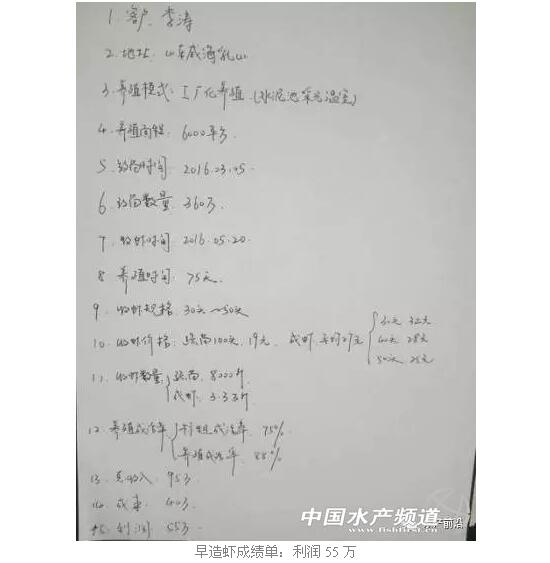 1. 客户: 李涛
2. 地址: 山东威海乳山
3. 养殖模式: 工厂化养殖 (水泥池采光温室)
4. 养殖面积: 6000平方
5. 放苗时间: 2016.03.05.
6 放苗数量: 360万.
7. 收虾时间: 2016.05.20.
8 养殖时间: 75天.
9. 收虾规格: 30头~50头
10. 收虾价格: 100头, 19元, 成虾, 平均27元
30头 32元
40头 28元
50头 25元
11. 收虾数量 8000斤
成虾: 3.3万斤
12. 养殖成活率 成活率. 75%
养殖成活率. 88%
13. 总收入: 95万
14. 成本: 40万
15. 利润: 55万
中国水产频道
www.fishfirst.cn
产前沿
早造虾成绩单：利润 55 万